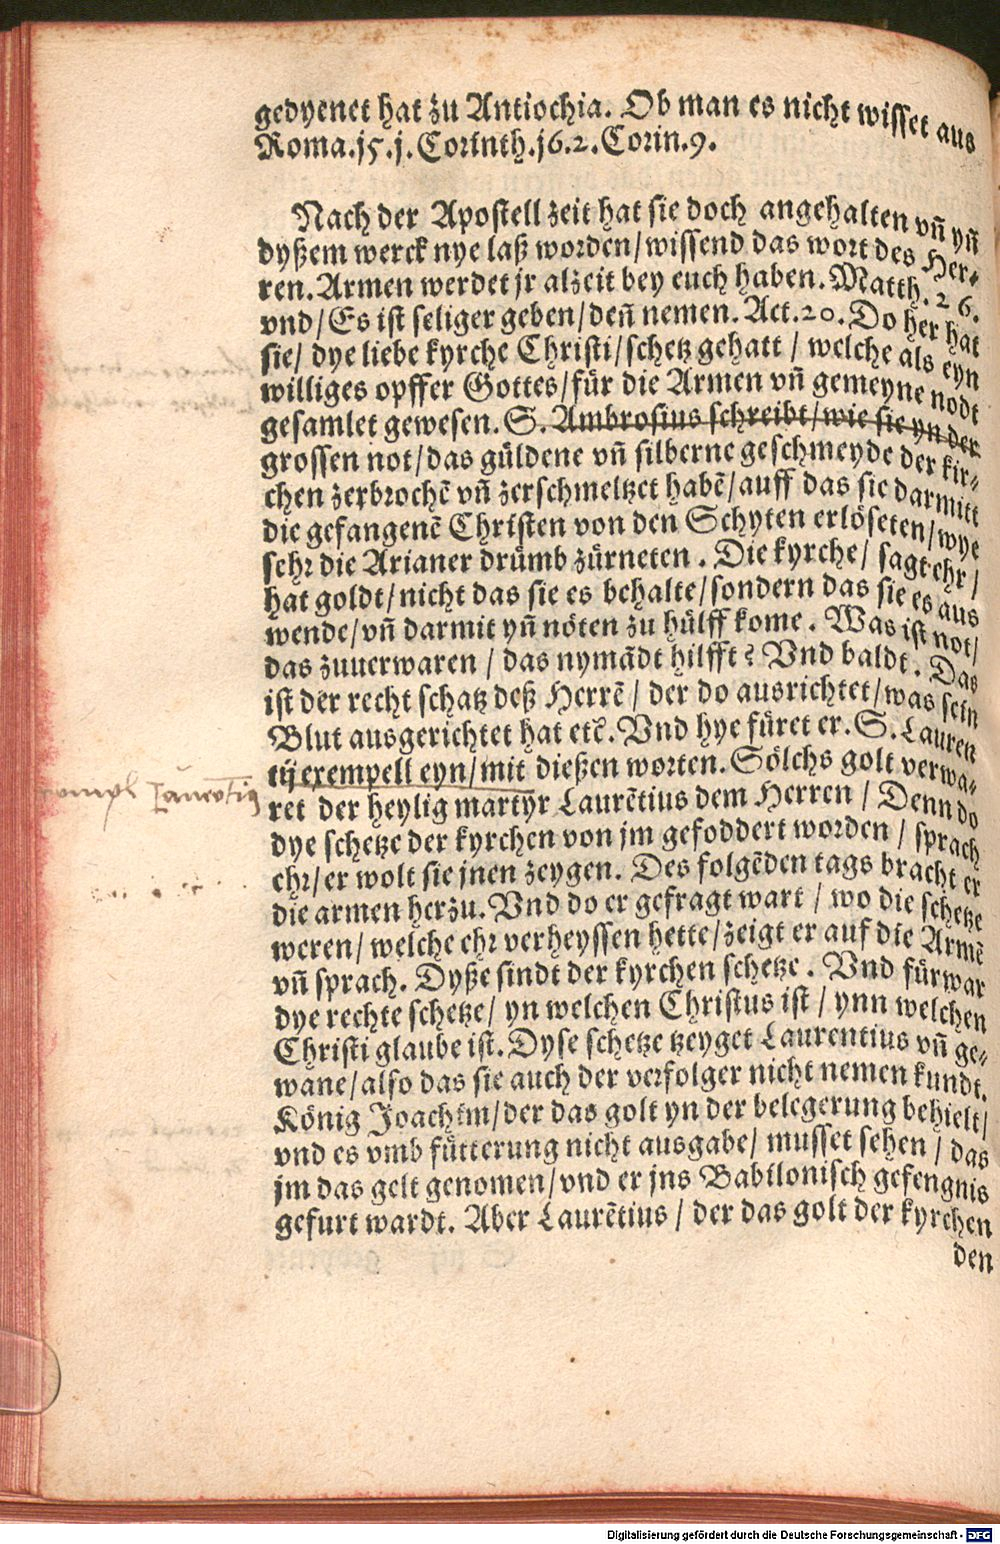 gedyenet hat zu Antiochia. Ob man es nicht wisset aus
Roma.j5.j.Corinth.j6.2.Corin.9.
Nach der Apostell zeit hat sie doch angehalten vn̄ yn̄
dyßem werck nye laß worden/wissend das wort des Her⸗
ren. Armen werdet jr alzeit bey euch haben. Matth. 26.
vnd/Es ist seliger geben/den̄ nemen. Act.20. Do her hat
sie/ dye liebe kyrche Christi/schetz gehatt / welche als eyn
williges opffer Gottes/für die Armen vn̄ gemeyne nodt
gesamlet gewesen. S. Ambrosius schreibt/wie sie yn der
grossen not/das güldene vn̄ silberne geschmeyde der kir⸗
chen zerbrochē vn̄ zerschmeltzet habē/auff das sie darmitt
die gefangenē Christen von den Schyten erlöseten/wye
sehr die Arianer drümb zürneten . Die kyrche/ sagt ehr /
hat goldt/nicht das sie es behalte/sondern das sie es aus
wende/vn̄ darmit yn̄ nöten zu hülff kome . Was ist not/
das zuuerwaren / das nymādt hilfft? Vnd baldt. Das
ist der recht schatz deß Herrē / der do ausrichtet/was sein
Blut ausgerichtet hat etc̄. Vnd hye füret er. S. Lauren
tij exempell eyn/mit dießen worten. Sölchs golt verwa⸗
ret der heylig martyr Laurētius dem Herren / Denn do
dye schetze der kyrchen von jm gefoddert worden / sprach
ehr/er wolt sie jnen zeygen. Des folgēden tags bracht er
die armen herzu. Vnd do er gefragt wart / wo die schetze
weren/ welche ehr verheyssen hette/zeigt er auf die Armē
vn̄ sprach. Dyße sindt der kyrchen schetze . Vnd fürwar
dye rechte schetze/ yn welchen Christus ist / ynn welchen
Christi glaube ist. Dyse schetze tzeyget Laurentius vn̄ ge⸗
wane/also das sie auch der verfolger nicht nemen kundt.
König Joachim/der das golt yn der belegerung behielt/
vnd es vmb fütterung nicht ausgabe/ musset sehen / das
jm das gelt genomen/vnd er jns Babilonisch gefengnis
gefurt wardt. Aber Laurētius / der das golt der kyrchen
den
Digitalisierung gefördert durch die Deutsche Forschungsgemeinschaft - DFG